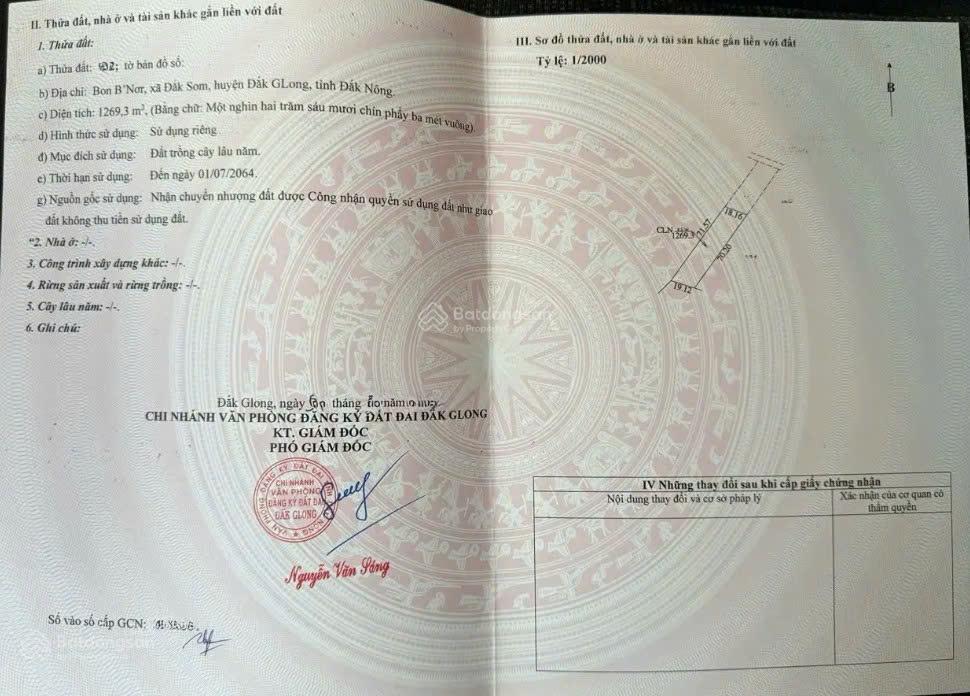 II. Thửa đất, nhà ở và tài sản khác gắn liền với đất
1. Thửa đất:
a) Thửa đất: tờ bản đồ số:
b) Địa chỉ: Bon B'Nơr, xã Đắk Som, huyện Đắk GLong, tỉnh Đắk Nông.
c) Diện tích: 1269,3 m², (Bằng chữ: Một nghìn hai trăm sáu mươi chín phẩy ba mét vuông).
d) Hình thức sử dụng: Sử dụng riêng
đ) Mục đích sử dụng: Đất trồng cây lâu năm.
e) Thời hạn sử dụng: Đến ngày 01/07/2064.
g) Nguồn gốc sử dụng: Nhận chuyển nhượng đất được Công nhận quyền sử dụng đất như giao
đất không thu tiền sử dụng đất.
"2. Nhà ở: -/-.
3. Công trình xây dựng khác: -/-.
4. Rừng sản xuất và rừng trồng: -/-.
5. Cây lâu năm: -/-.
6. Ghi chú:
Đắk Glong, ngày tháng năm
CHI NHÁNH VĂN PHÒNG ĐĂNG KÝ ĐẤT ĐAI ĐẮK GLONG
KT. GIÁM ĐỐC
PHÓ GIÁM ĐỐC
CHI NHÁNH
VĂN PHÒNG
ĐĂNG KÝ ĐẤT ĐAI
ĐẮK GLONG
Nguyễn Văn Sáng
Số vào sổ cấp GCN:
Batdongsan
III. Sơ đồ thửa đất, nhà ở và tài sản khác gắn liền với đất
Tỷ lệ: 1/2000
B
18.16
71.57
CLN
1269.3
70.20
19.12
Batdongsan
by PropertyGuru
IV Những thay đổi sau khi cấp giấy chứng nhận
Nội dung thay đổi và cơ sở pháp lý
Xác nhận của cơ quan có
thẩm quyền